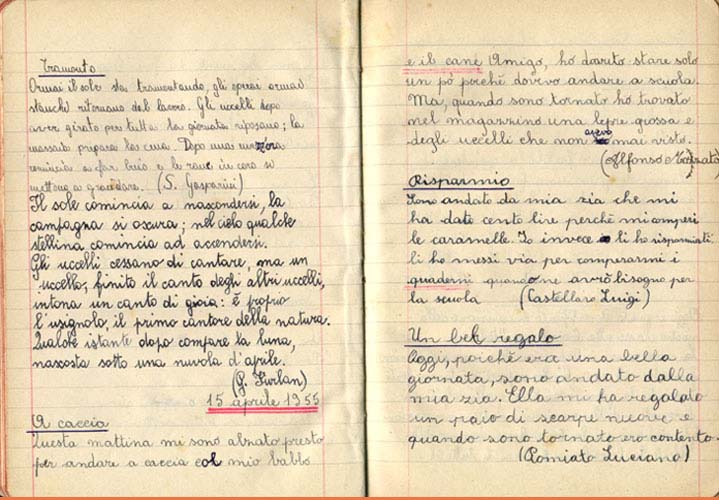 Tramonto
Ormai il sole sta tramontando, gli operai ormai
stanchi ritornano dal lavoro. Gli uccelli dopo
aver girato per tutta la giornata riposano; la
massaia prepara la cena. Dopo una mezzora
comincia a far buio e le rane in coro si
mettono a gracidare. (S. Gasparini)
Il sole comincia a nascondersi, la
campagna si oscura; nel cielo qualche
stellina comincia ad accendersi.
Gli uccelli cessano di cantare, ma un
uccello, finito il canto degli altri uccelli,
intona un canto di gioia: è proprio
l'usignolo, il primo cantore della natura.
Qualche istante dopo compare la luna,
nascosta sotto una nuvola d'aprile.
(G. Furlan)
15 aprile 1955
A caccia
Questa mattina mi sono alzato presto
per andare a caccia col mio babbo
e il cane Amigo, ho dovuto stare solo
un pò perchè dovevo andare a scuola.
Ma, quando sono tornato ho trovato
nel magazzino una lepre grossa e
degli uccelli che non avevo mai visto.
(Alfonso
Risparmio
Sono andato da mia zia che mi
ha dato cento lire perchè mi comperi
le caramelle. Io invece li ho risparmiati.
li ho messi via per comperarmi i
quaderni quando ne avrò bisogno per
la scuola (Castellaro Luigi)
Un bel regalo
Oggi, poichè era una bella
giornata, sono andato dalla
mia zia. Ella mi ha regalato
un paio di scarpe nuove e
quando sono tornato ero contento.
(Romiato Luciano)